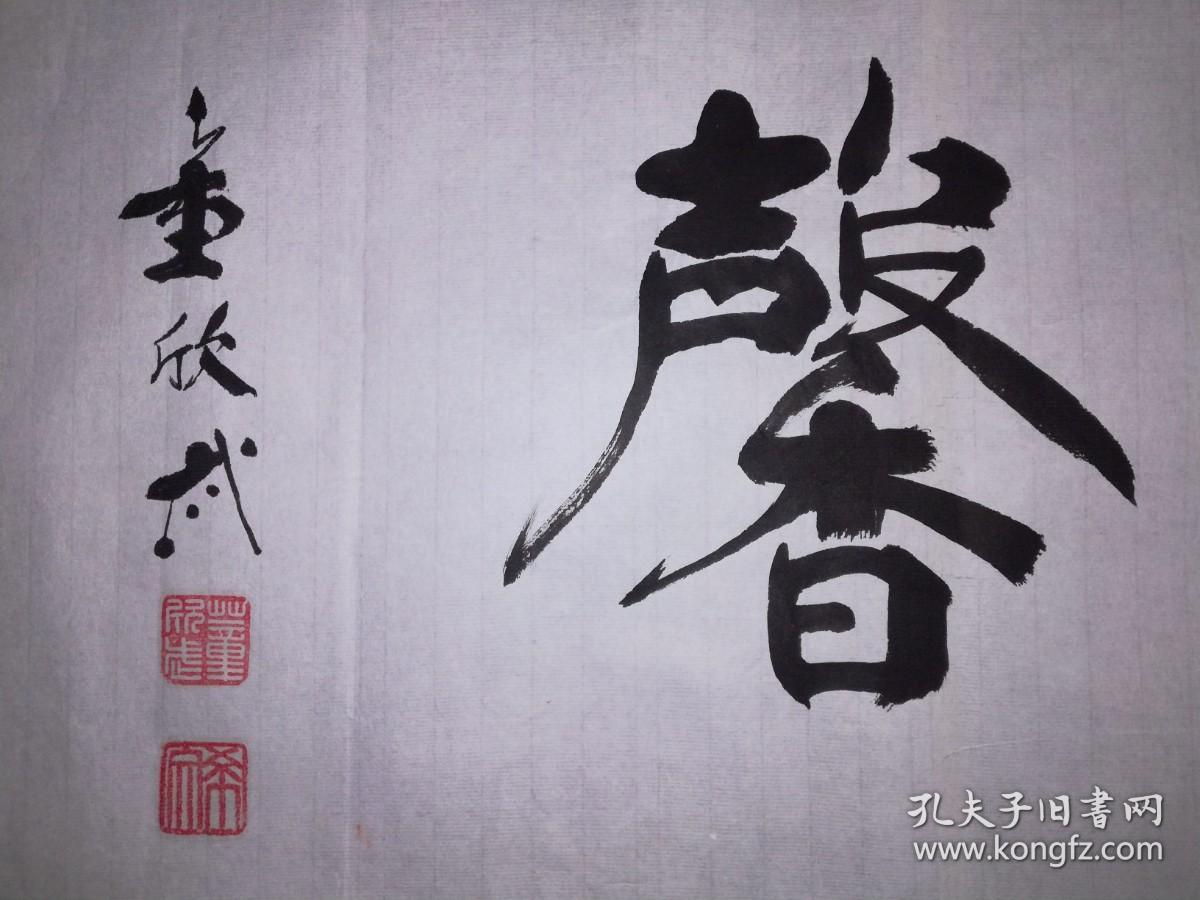 馨
董欣武
董欣武
孔夫子旧書网
www.kongfz.com